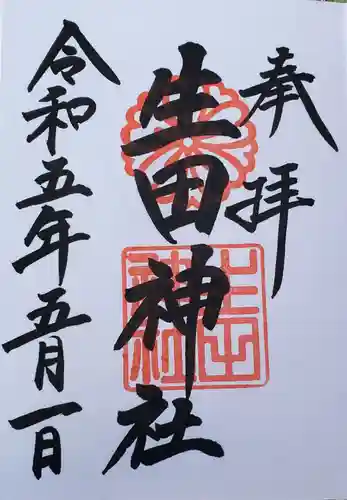 奉拝
生田神社
令和五年五月一日